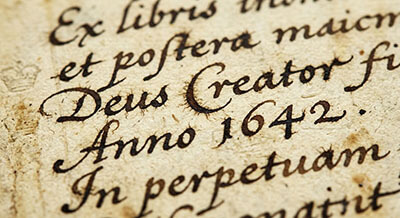 Ex libris
et postera maicm
Deus Creator fi
Anno 1642.
In perpetuam